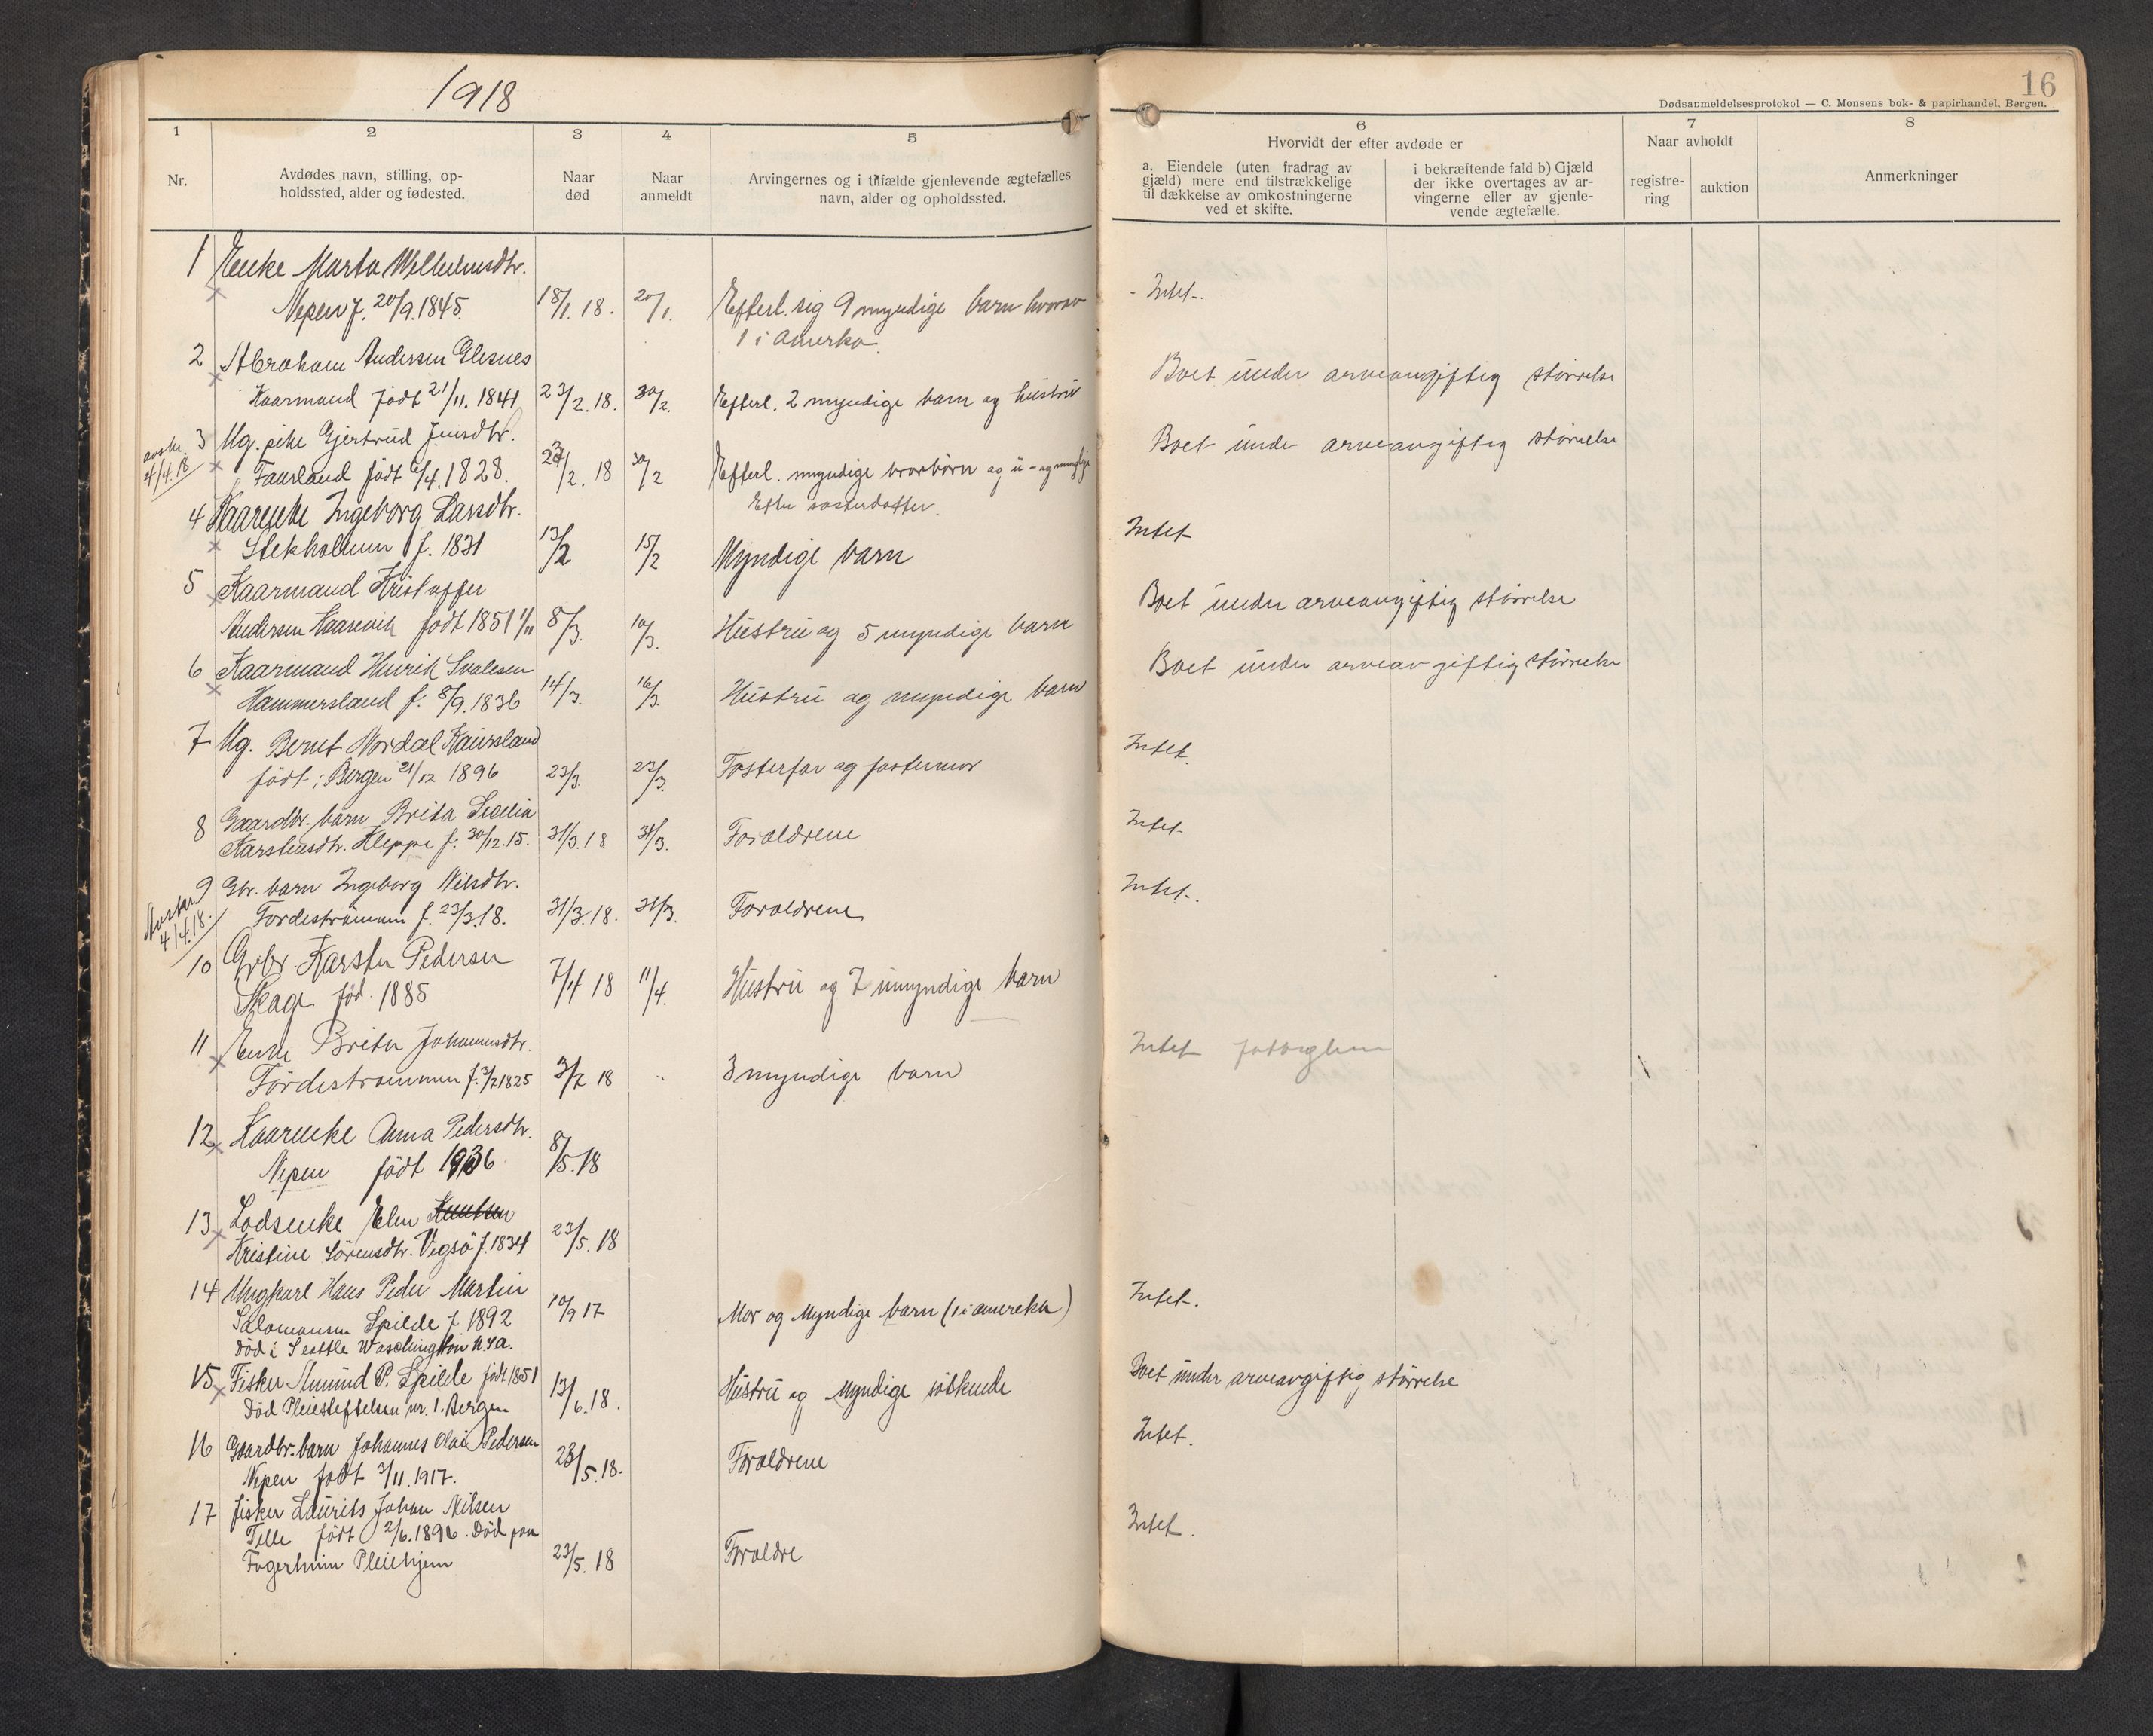 1918
16
Dødsanmeldelsesprotokol — C. Monsens bok- & papirhandel, Bergen.
1
2
3
4
5
6
7
8
Nr.
Avdødes navn, stilling, op-
holdssted, alder og fødested.
Naar
død
Naar
anmeldt
Arvingernes og i tilfælde gjenlevende ægtefælles
navn, alder og opholdssted.
Hvorvidt der efter avdøde er
a. Eiendele (uten fradrag av
gjæld) mere end tilstrækkelige
til dækkelse av omkostningerne
ved et skifte.
i bekræftende fald b) Gjæld
der ikke overtages av ar-
vingerne eller av gjenle-
vende ægtefælle.
Naar avholdt
registre-
ring
auktion
Anmerkninger
1 Enke Marta Wilhelmsdtr.
Nepen f. 20/9. 1845. 18/1. 18. 20/1. Efterl. sig 9 myndige barn hvorav
1 i Amerka.
- Intet.
2 Abraham Andersen Glesnes
Kaarmand født 21/11. 1841 23/2. 18. 30/2. Efterl. 2 myndige barn og hustru
Boet under arveavgiftig størrelse
3 Ug. pike Gjertrud Jensdtr.
4/4.18
Faurland født 6/4. 1828. 27/2. 18 30/2 Efterl. myndige brorbörn og u- og myndige
Efter søsterdatter.
Boet unde arveavgiftig størrelse
4 Kaarenke Ingeborg Larsdtr.
Stekholmen f. 1831 13/2 15/2 Myndige barn
Intet
5 Kaarmand Kristoffer
Andersen Kaarevik født 1851 1/11 8/3. 10/3. Hustru og 5 myndige barn
Boet under arveavgiftig størrelse
6 Kaarmand Henrik
Hammersland f. 8/9. 1836 14/3. 16/3. Hustru og myndige barn
Boet under arveavgiftig størrelse
7 Ug. Bernt Nordal Kaursland
født i Bergen 21/12 1896 23/3. 23/3. Fosterfar og fostermor
Intet.
8 Gaardbr. barn Brita
Karstensdtr. Kleppe f. 30/12. 15. 31/3. 18 31/3. Foraldrene
Intet
9 Gbr. barn Ingeborg Nilsdtr.
4/4.18.
Fordestrømmen f. 23/3.18. 31/3. 18. 31/3. Foraldrene
Intet.
10 Grbr. Karsten Pedersen
Skage fød. 1885 7/4 18 11/4. Hustru og 7 umyndige barn
11 Enke Brita Johannesdtr.
Fördestrømmen f. 3/7 1825 3/2 18 „ 3 myndige barn
Intet
12 Kaarenke Anna Pedersdtr.
Nepen født 1936 8/5. 18
13 Lodsenke Elen
Kristine Sörensdtr. Vigsö f. 1834 23/5. 18
14 Ungkarl Hans Peder Martin
Salomonsen Spilde f. 1892 10/9 17 Mor og Myndige barn (1 i amerekka)
Død i Seattle Waschington U.S.a.
Intet.
15 Fisker Amund P. Spilde født 1851
Død Pleiestiftelsen nr. 1. Bergen 13/6. 18. Hustru og Myndige søskende
Boet under arveavgiftig størrelse
16 Gaardbr. barn Johannes Olai Pedersen
Nepen født 3/11. 1917. 23/5. 18. Foraldrene
Intet.
17 fisker Laurits Johan Nilsen
Telle født 2/6. 1896. Død paa
Fagerheim Pleiehjem 23/5. 18 Foraldre
Intet.